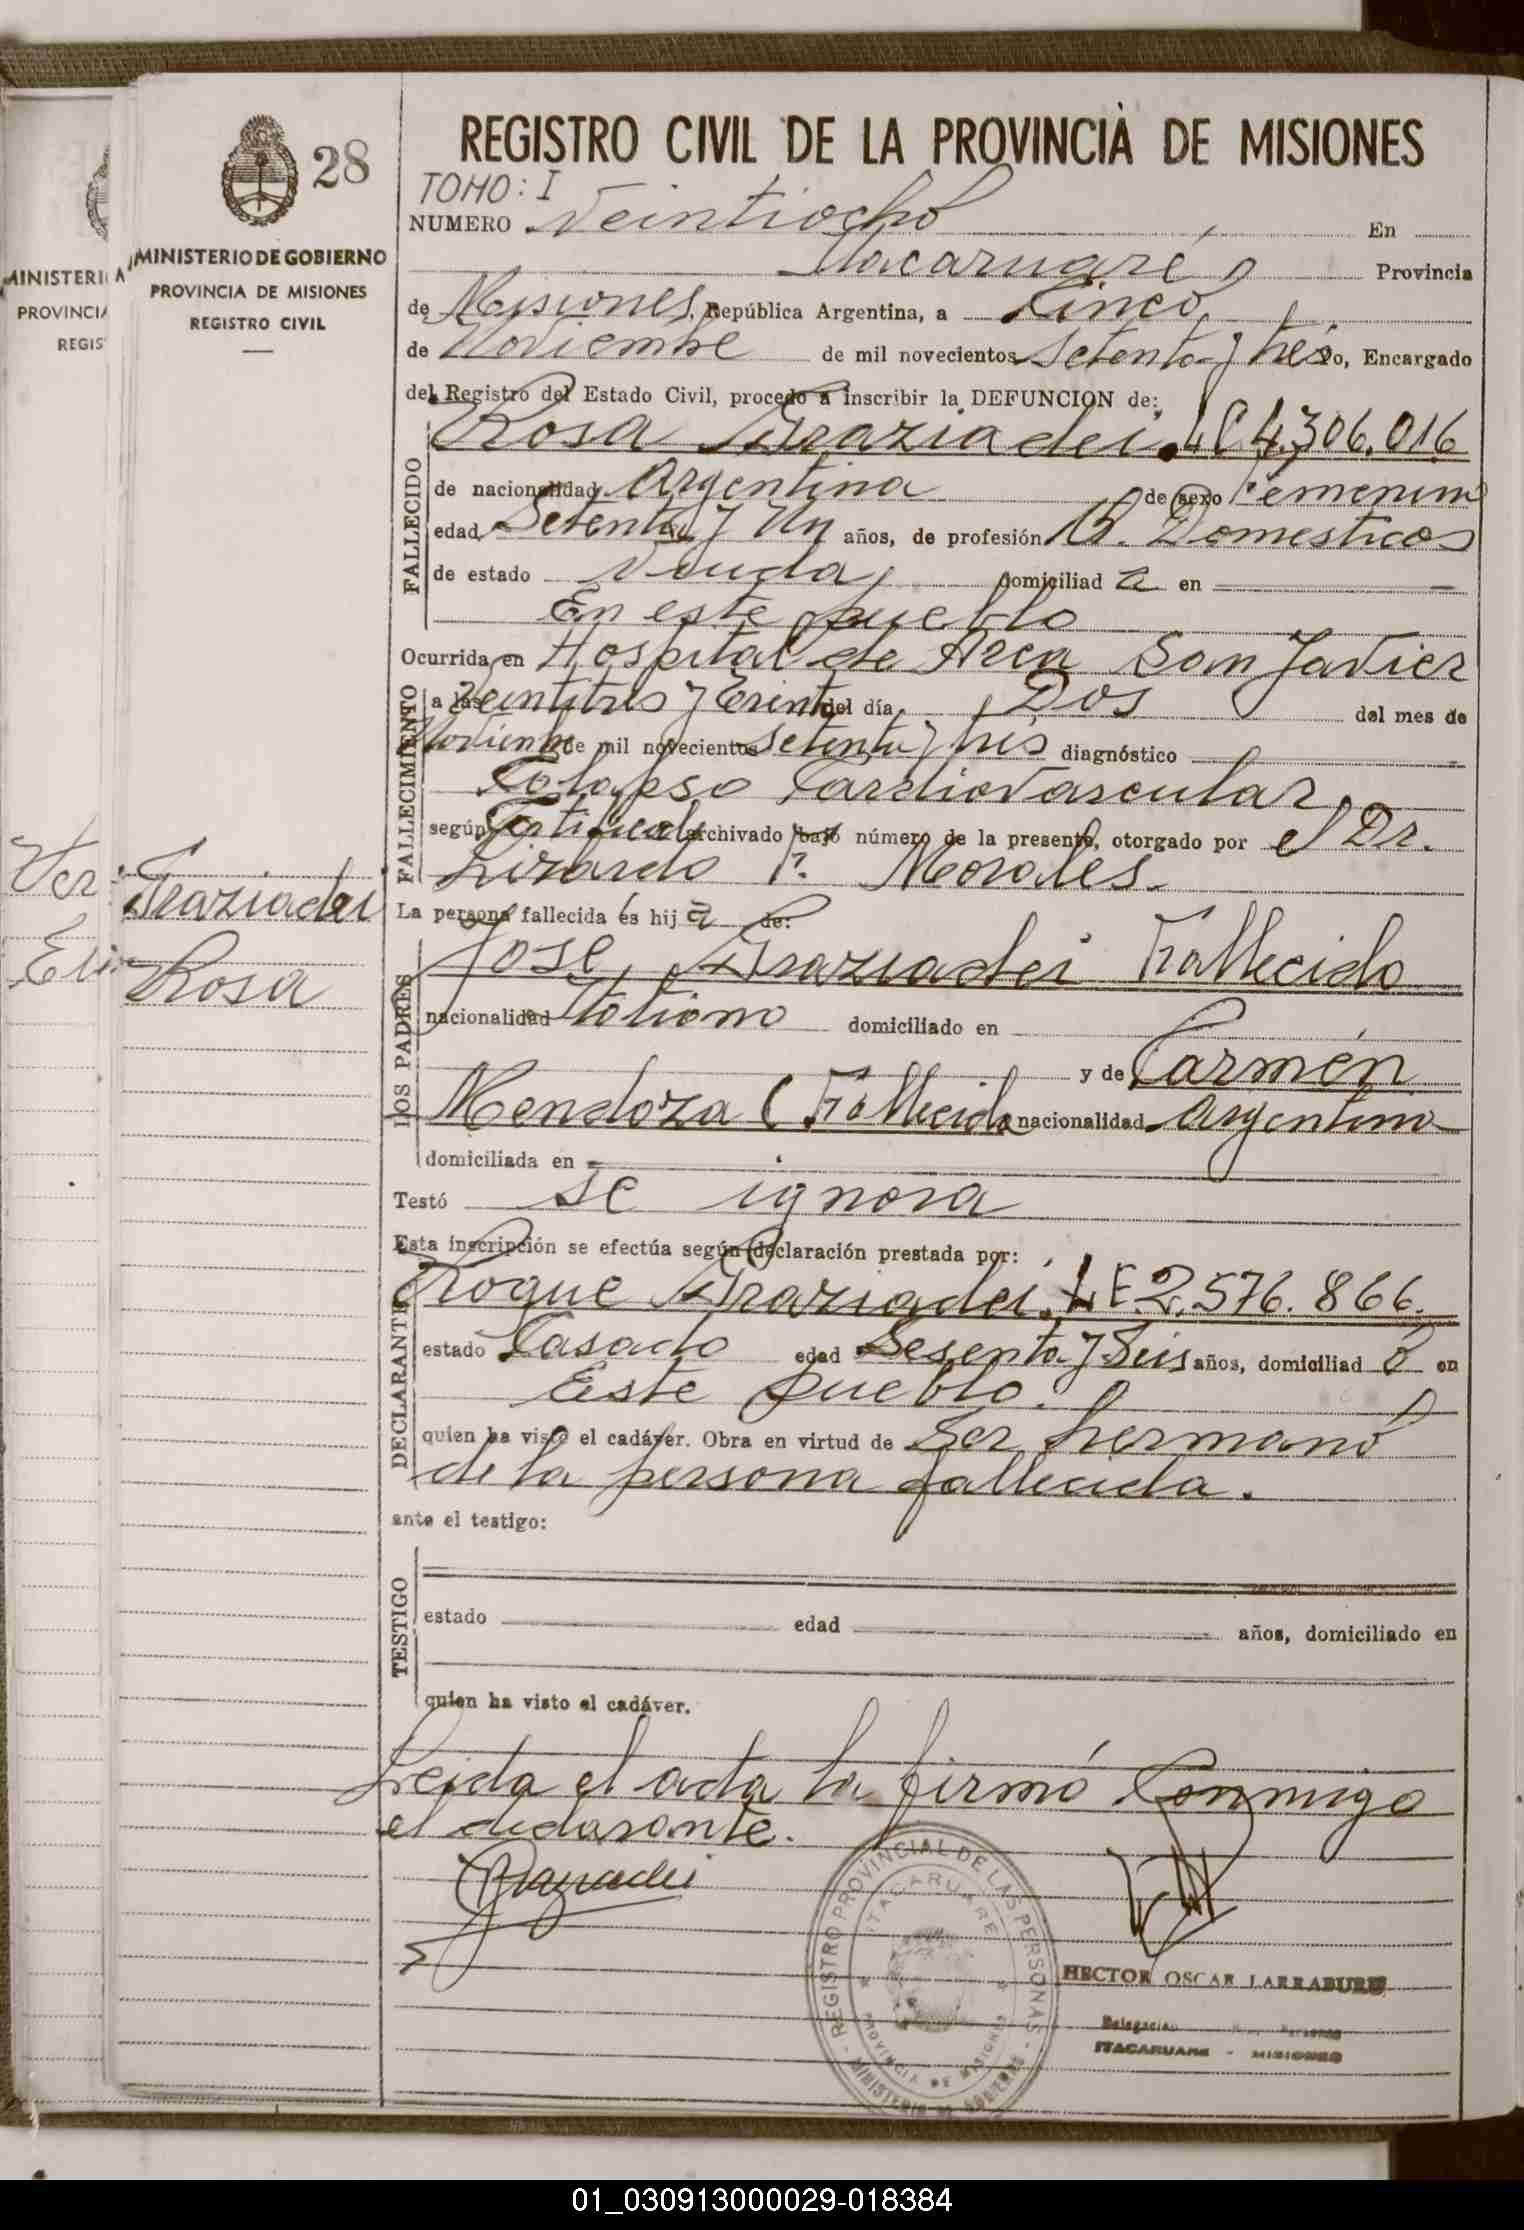 REGISTRO CIVIL DE LA PROVINCIA DE MISIONES
28
TOMO: I
NUMERO Veintiocho En
Itacaruaré, Provincia
MINISTERIO DE GOBIERNO
PROVINCIA DE MISIONES
REGISTRO CIVIL
MINISTERI
PROVINCI
REGIS
de Misiones, República Argentina, a Cinco
de Noviembre de mil novecientos Setenta y tres Yo, Encargado
del Registro del Estado Civil, procedo a inscribir la DEFUNCION de:
Rosa Graziadei. LC 4.306.016
FALLECIDO
de nacionalidad Argentina de sexo Femenino
edad Setenta y Un años, de profesión Q. Domesticos
de estado Viuda, domiciliad a en
En este pueblo
Ocurrida en Hospital de Area San Javier
FALLECIMIENTO
a las Veintitres y Treinta del día Dos del mes de
Noviembre de mil novecientos Setenta y tres diagnóstico
Colapso Cardiovascular,
según Certificado archivado bajo número de la presente, otorgado por el Dr.
Lizardo P. Morales.
Ver
Graziadei
Rosa
La persona fallecida es hij a de:
LOS PADRES
Jose Graziadei Fallecido
nacionalidad Italiano domiciliado en
y de Carmen
Mendoza (Fallecida nacionalidad Argentina
domiciliada en
Testó se ignora
Esta inscripción se efectúa según declaración prestada por:
DECLARANTE
Roque Graziadei. LE.2.576.866.
estado Casado edad Sesenta y Seis años, domiciliad o en
Este pueblo.
quien ha visto el cadáver. Obra en virtud de Ser hermano
de la persona fallecida.
ante el testigo:
TESTIGO
estado edad años, domiciliado en
quien ha visto el cadáver.
Leida el acta la firmó Conmigo
el declarante.
Graziadei
REGISTRO PROVINCIAL DE LAS PERSONAS
ITACARUARE
PROVINCIA DE MISIONES
MINISTERIO DE GOBIERNO
HECTOR OSCAR LARRABURU
ITACARUARE - MISIONES
01_030913000029-018384